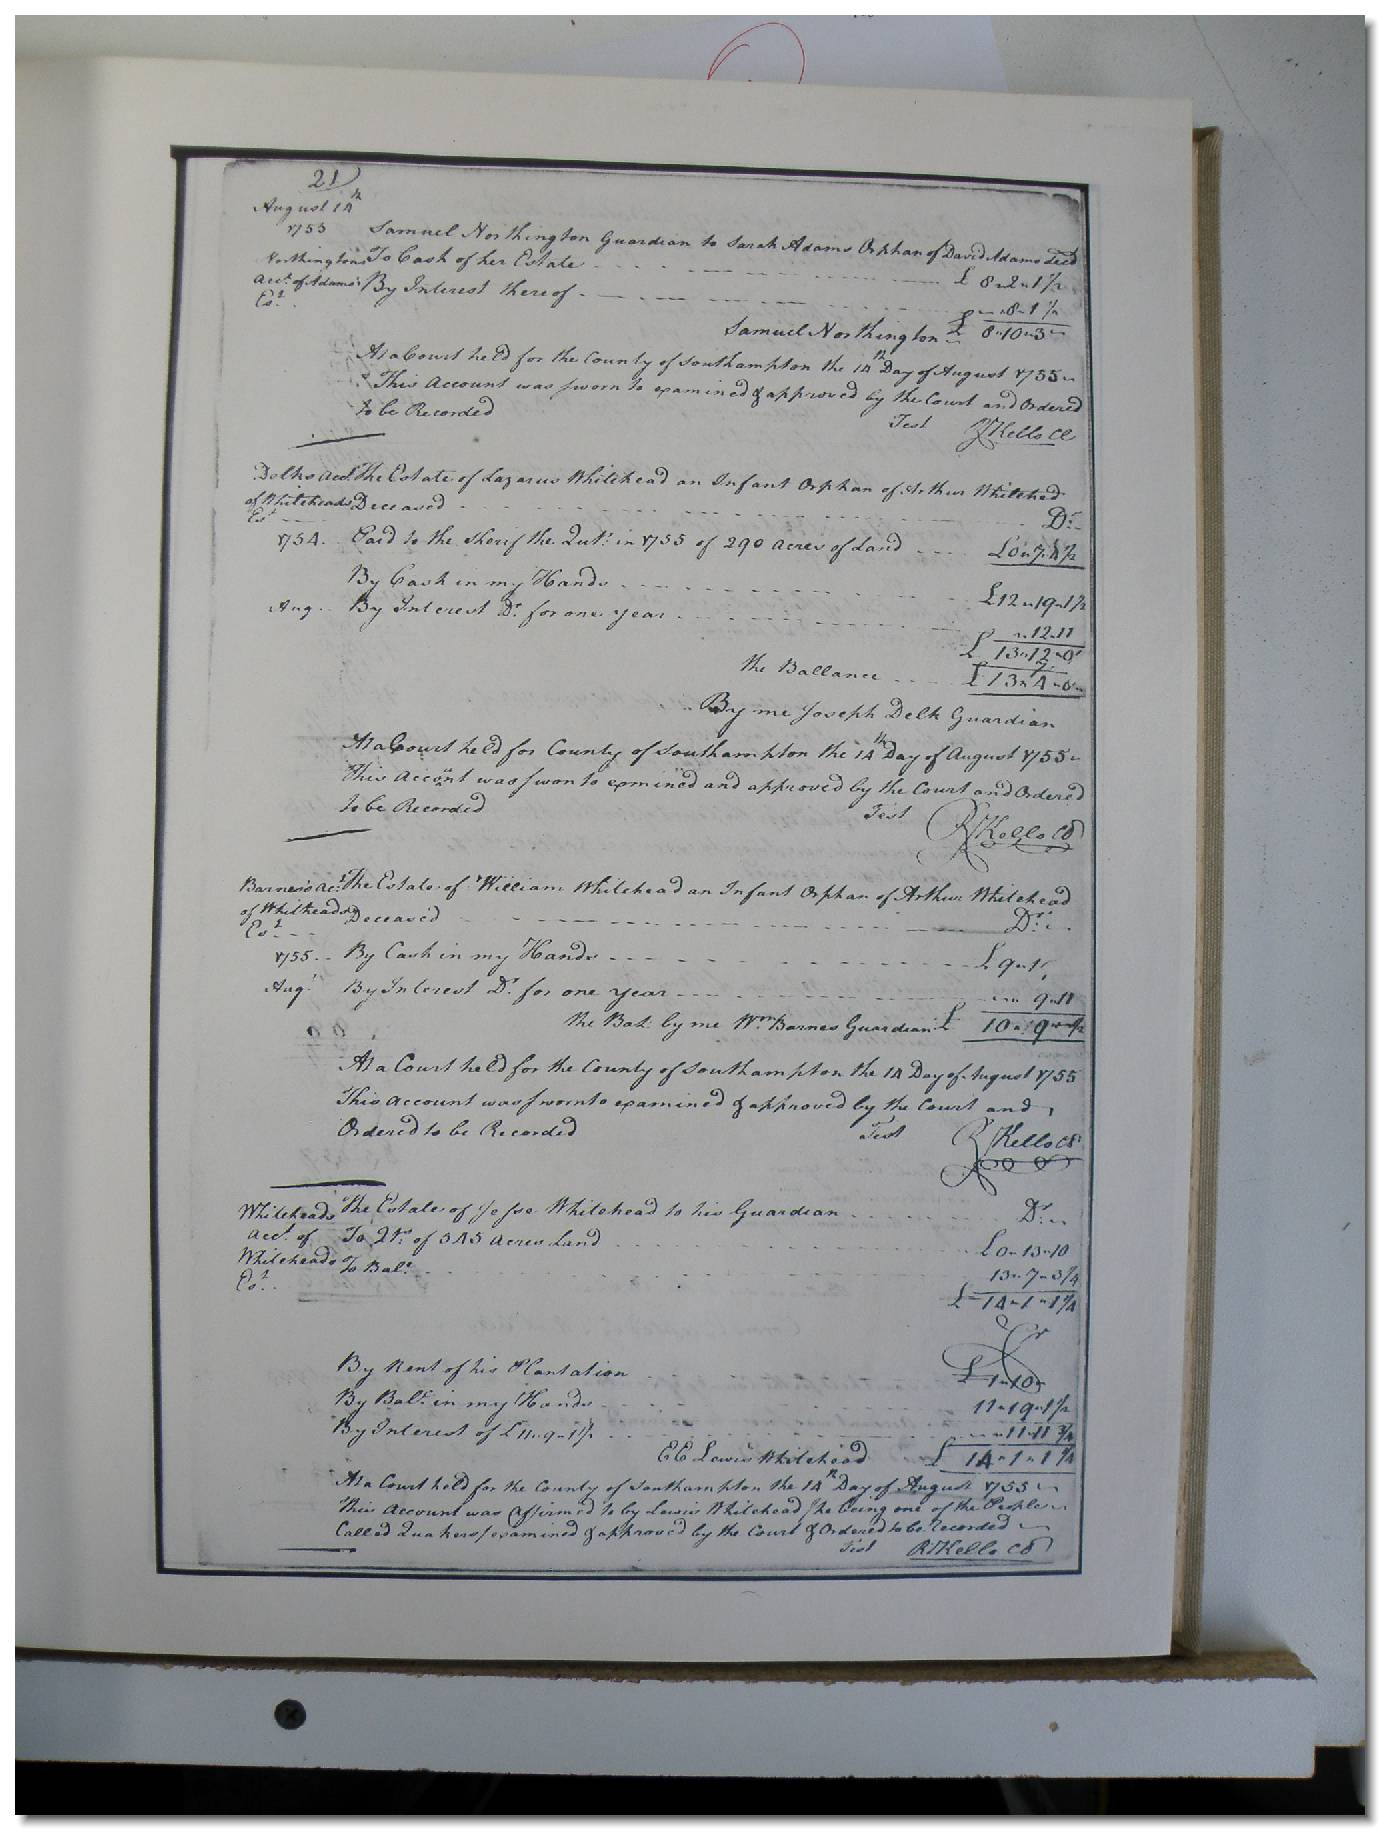 21
August 14th
1755 Samuel Northington Guardian to Sarah Adams Orphan of David Adams Decd
Northingtons To Cash of her Estate £ 8 " 2 " 1 1/2
Acct. of Adams's By Interest thereof " 8 " 1 1/2
Est. Samuel Northington £ 8 " 10 " 3
At a Court held for the County of Southampton the 14th Day of August 1755
This Account was sworn to examined & approved by the Court and Ordered
to be Recorded Test R Kello Cl
Delks Acct The Estate of Lazarus Whitehead an Infant Orphan of Arthur Whithed
of Whiteheads Deceased Dr.
Est
1754. Paid to the Sherif the Qut. in 1755 of 290 Acres of Land £0 " 7 " 4 1/2
By Cash in my Hands £12 " 19 " 1 1/2
Aug. By Interest Do. for one year " 12 " 11
£ 13 " 12 " 0
the Ballance £ 13 " 4 "
By me Joseph Delk Guardian
At a Court held for County of Southampton the 14th Day of August 1755
This Account was swon to exmined and approved by the Court and Ordered
to be Recorded Test R Kello Cl
Barnes's Act. The Estate of William Whitehead an Infant Orphan of Arthur Whitehead
of Whiteheads Deceased Dr.
Est.
1755. By Cash in my Hands £ 9 "
Aug. By Interest Do. for one year " 9 " 11
the Bal. by me Wm. Barnes Guardian £ 10 " 9
At a Court held for the County of Southampton the 14 Day of August 1755
This Account was sworn to examined & approved by the Court and
Ordered to be Recorded Test R Kello Cl
Whiteheads The Estate of Jesse Whitehead to his Guardian Dr.
Acct. of To Qts. of 545 Acres Land £0 " 13 " 10
Whiteheads To Bale. 13 " 7 " 3 1/4
Est. £ 14 " 1 " 1 1/4
Cr
By Rent of his Plantation £ 1 " 10 "
By Bale. in my Hands 11 " 19 " 1 1/2
By Interest of £11 " 9 " 1 1/2 " 11 " 11 3/4
EE Lewis Whitehead £ 14 " 1 " 1 1/4
At a Court held for the County of Southampton the 14th Day of August 1755
This Account was affirmed to by Lewis Whitehead /he being one of the People
Called Quakers/ examined & approved by the Court & Ordered to be Recorded
Test R Kello Cl